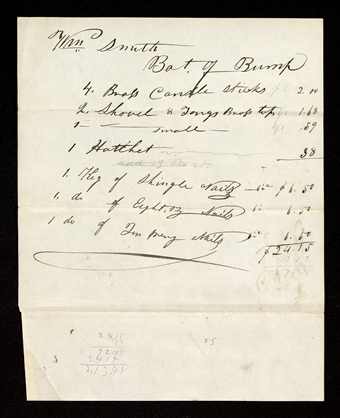 Wm Smith
Bat. of Bump
4. Brass Candle sticks 2.00
2. Shovel & Tongs Brass top 1.68
1 — small — .59
1 Hatchet 38
1. Keg of Shingle Nails $6.50
1. do of Eight,oz Nails 6.50
1 do of Ten Peny Nails 6.50
$24.15
2415